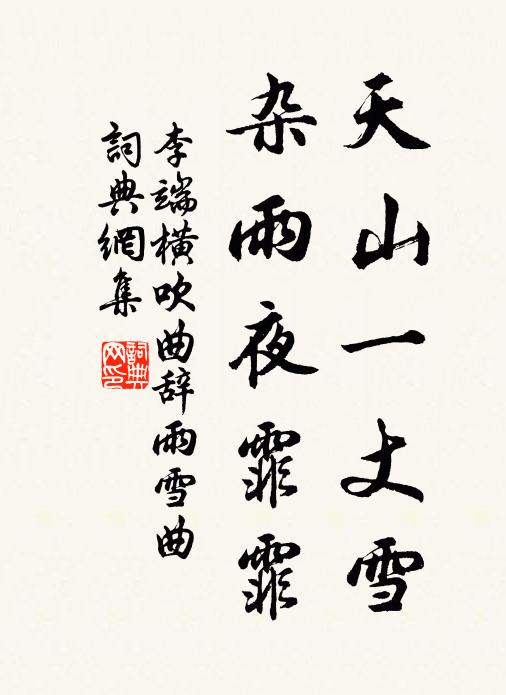 天山一丈雪
杂雨夜霏霏
李端橫吹曲辞雨雪曲
詞典網集
詞典网印